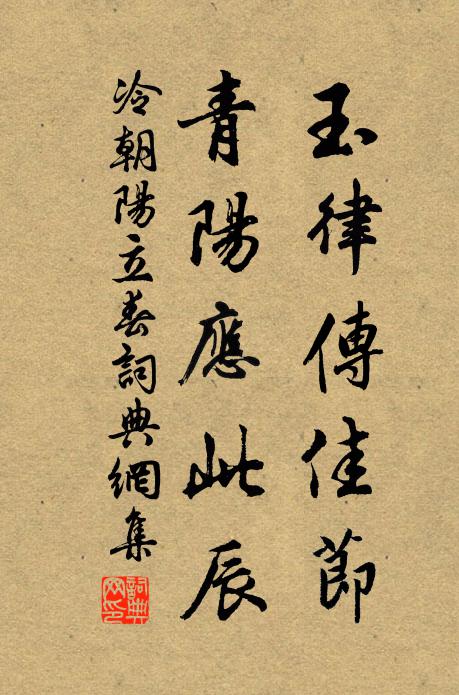 玉律傳佳節
青陽應此辰
冷朝陽立春詞典網集
詞典网印